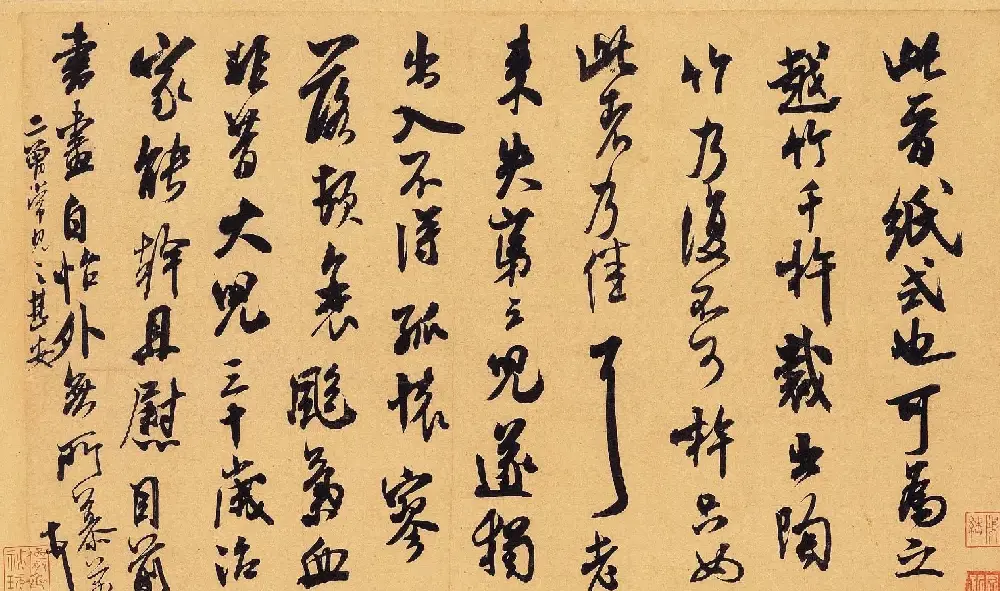 此晉紙式也可爲之
越竹千杵裁出陶
竹乃復不可杵只如
此者乃佳耳老
來失第三兒遂獨
出入不得孤懷寥
落頓衰颯氣血
非昔大兒三十歲治
家能幹且慰目前
書畫自怡外無所慕芾
二甥常見之甚安